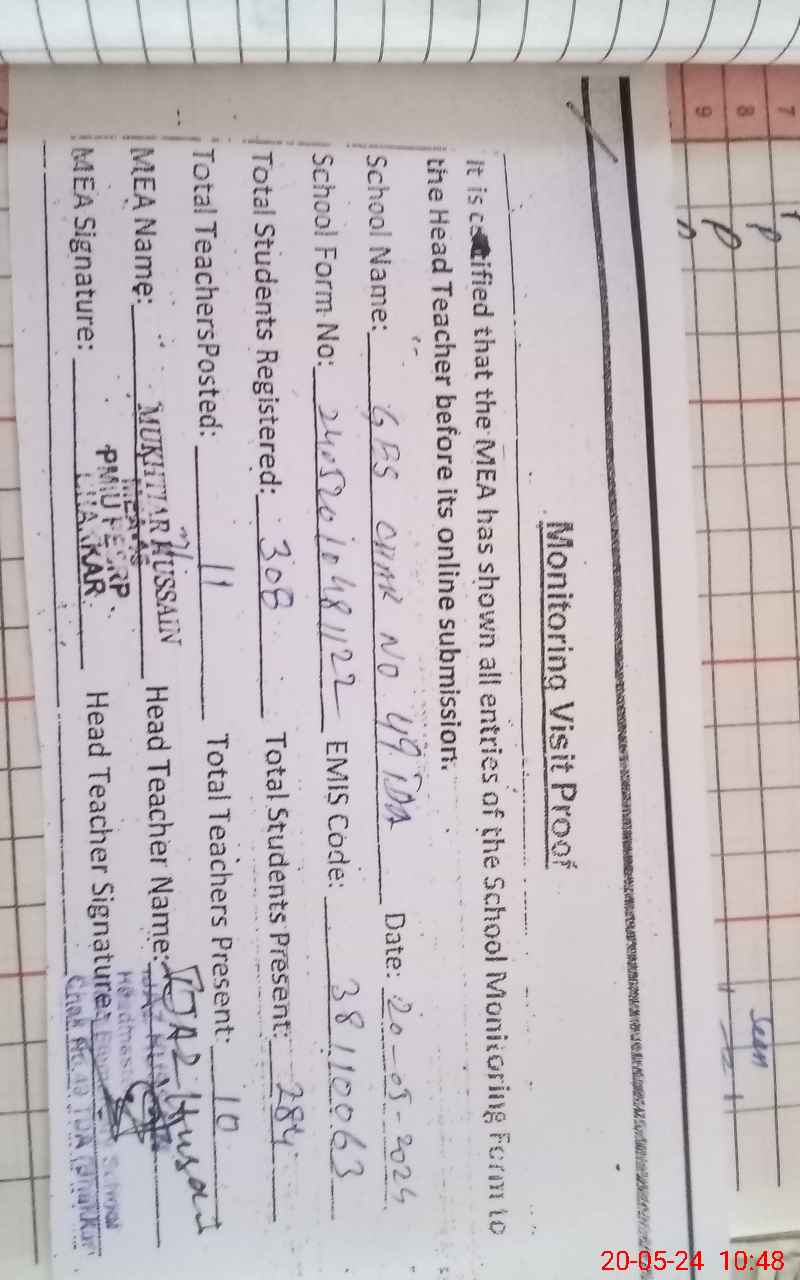 Monitoring Visit Proof
It is certified that the MEA has shown all entries of the School Monitoring Form to
the Head Teacher before its online submission.
School Name: GES CHAK NO 49 TDA Date: 20-05-2024
School Form No: 24052010481122 EMIS Code: 38110063
Total Students Registered: 308 Total Students Present: 284
Total Teachers Posted: 11 Total Teachers Present: 10
MEA Name: MUKHTIAR HUSSAIN Head Teacher Name:
MEA Signature: PMIU PESRP Head Teacher Signature:
Chak No. 49 TDA
7
8
9
P
P
Seen
20-05-24 10:48